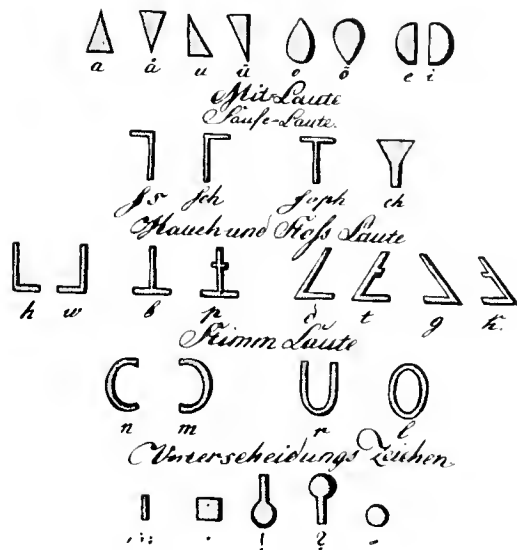 a å u ü o ö e i
Mit Laute
Säuse-Laute.
ſs ſch f oph ch
Hauch und Stoſs Laute
h w b p d t g k.
Stimm Laute
n m r l
Unterscheidungs Zeichen.
. ! ? -